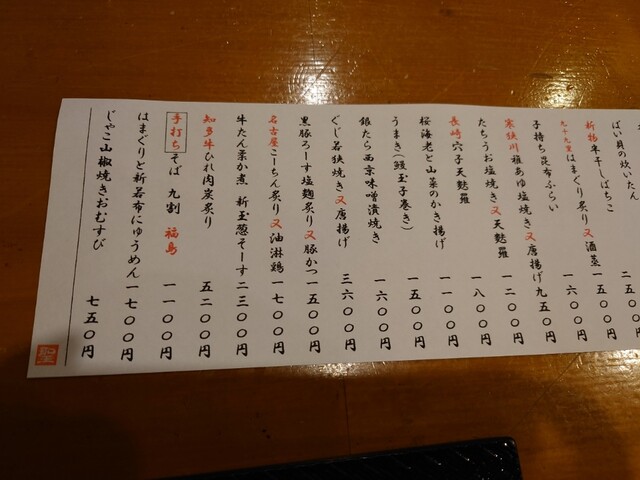 ばい貝の炊いたん 二五〇〇円
新物 半干しばちこ 一五〇〇円
九十九里はまぐり炙り又酒蒸 一六〇〇円
子持ち昆布ふらい 九五〇円
寒狭川稚あゆ塩焼き又唐揚げ 一二〇〇円
たちうお塩焼き又天麩羅 一八〇〇円
長崎穴子天麩羅 一一〇〇円
桜海老と山菜のかき揚げ 一五〇〇円
うまき(鰻玉子巻き) 一六〇〇円
銀たら西京味噌漬焼き 一六〇〇円
ぐじ若狭焼き又唐揚げ 三六〇〇円
黒豚ろーす塩麹炙り又豚かつ 一五〇〇円
名古屋こーちん炙り又油淋鶏 一七〇〇円
牛たん柔か煮 新玉葱そーす 二三〇〇円
知多牛ひれ肉炭炙り 五二〇〇円
手打ちそば 九割 福島 一一〇〇円
はまぐりと新若布にゅうめん 一七〇〇円
じゃこ山椒焼きおむすび 七五〇円
聖